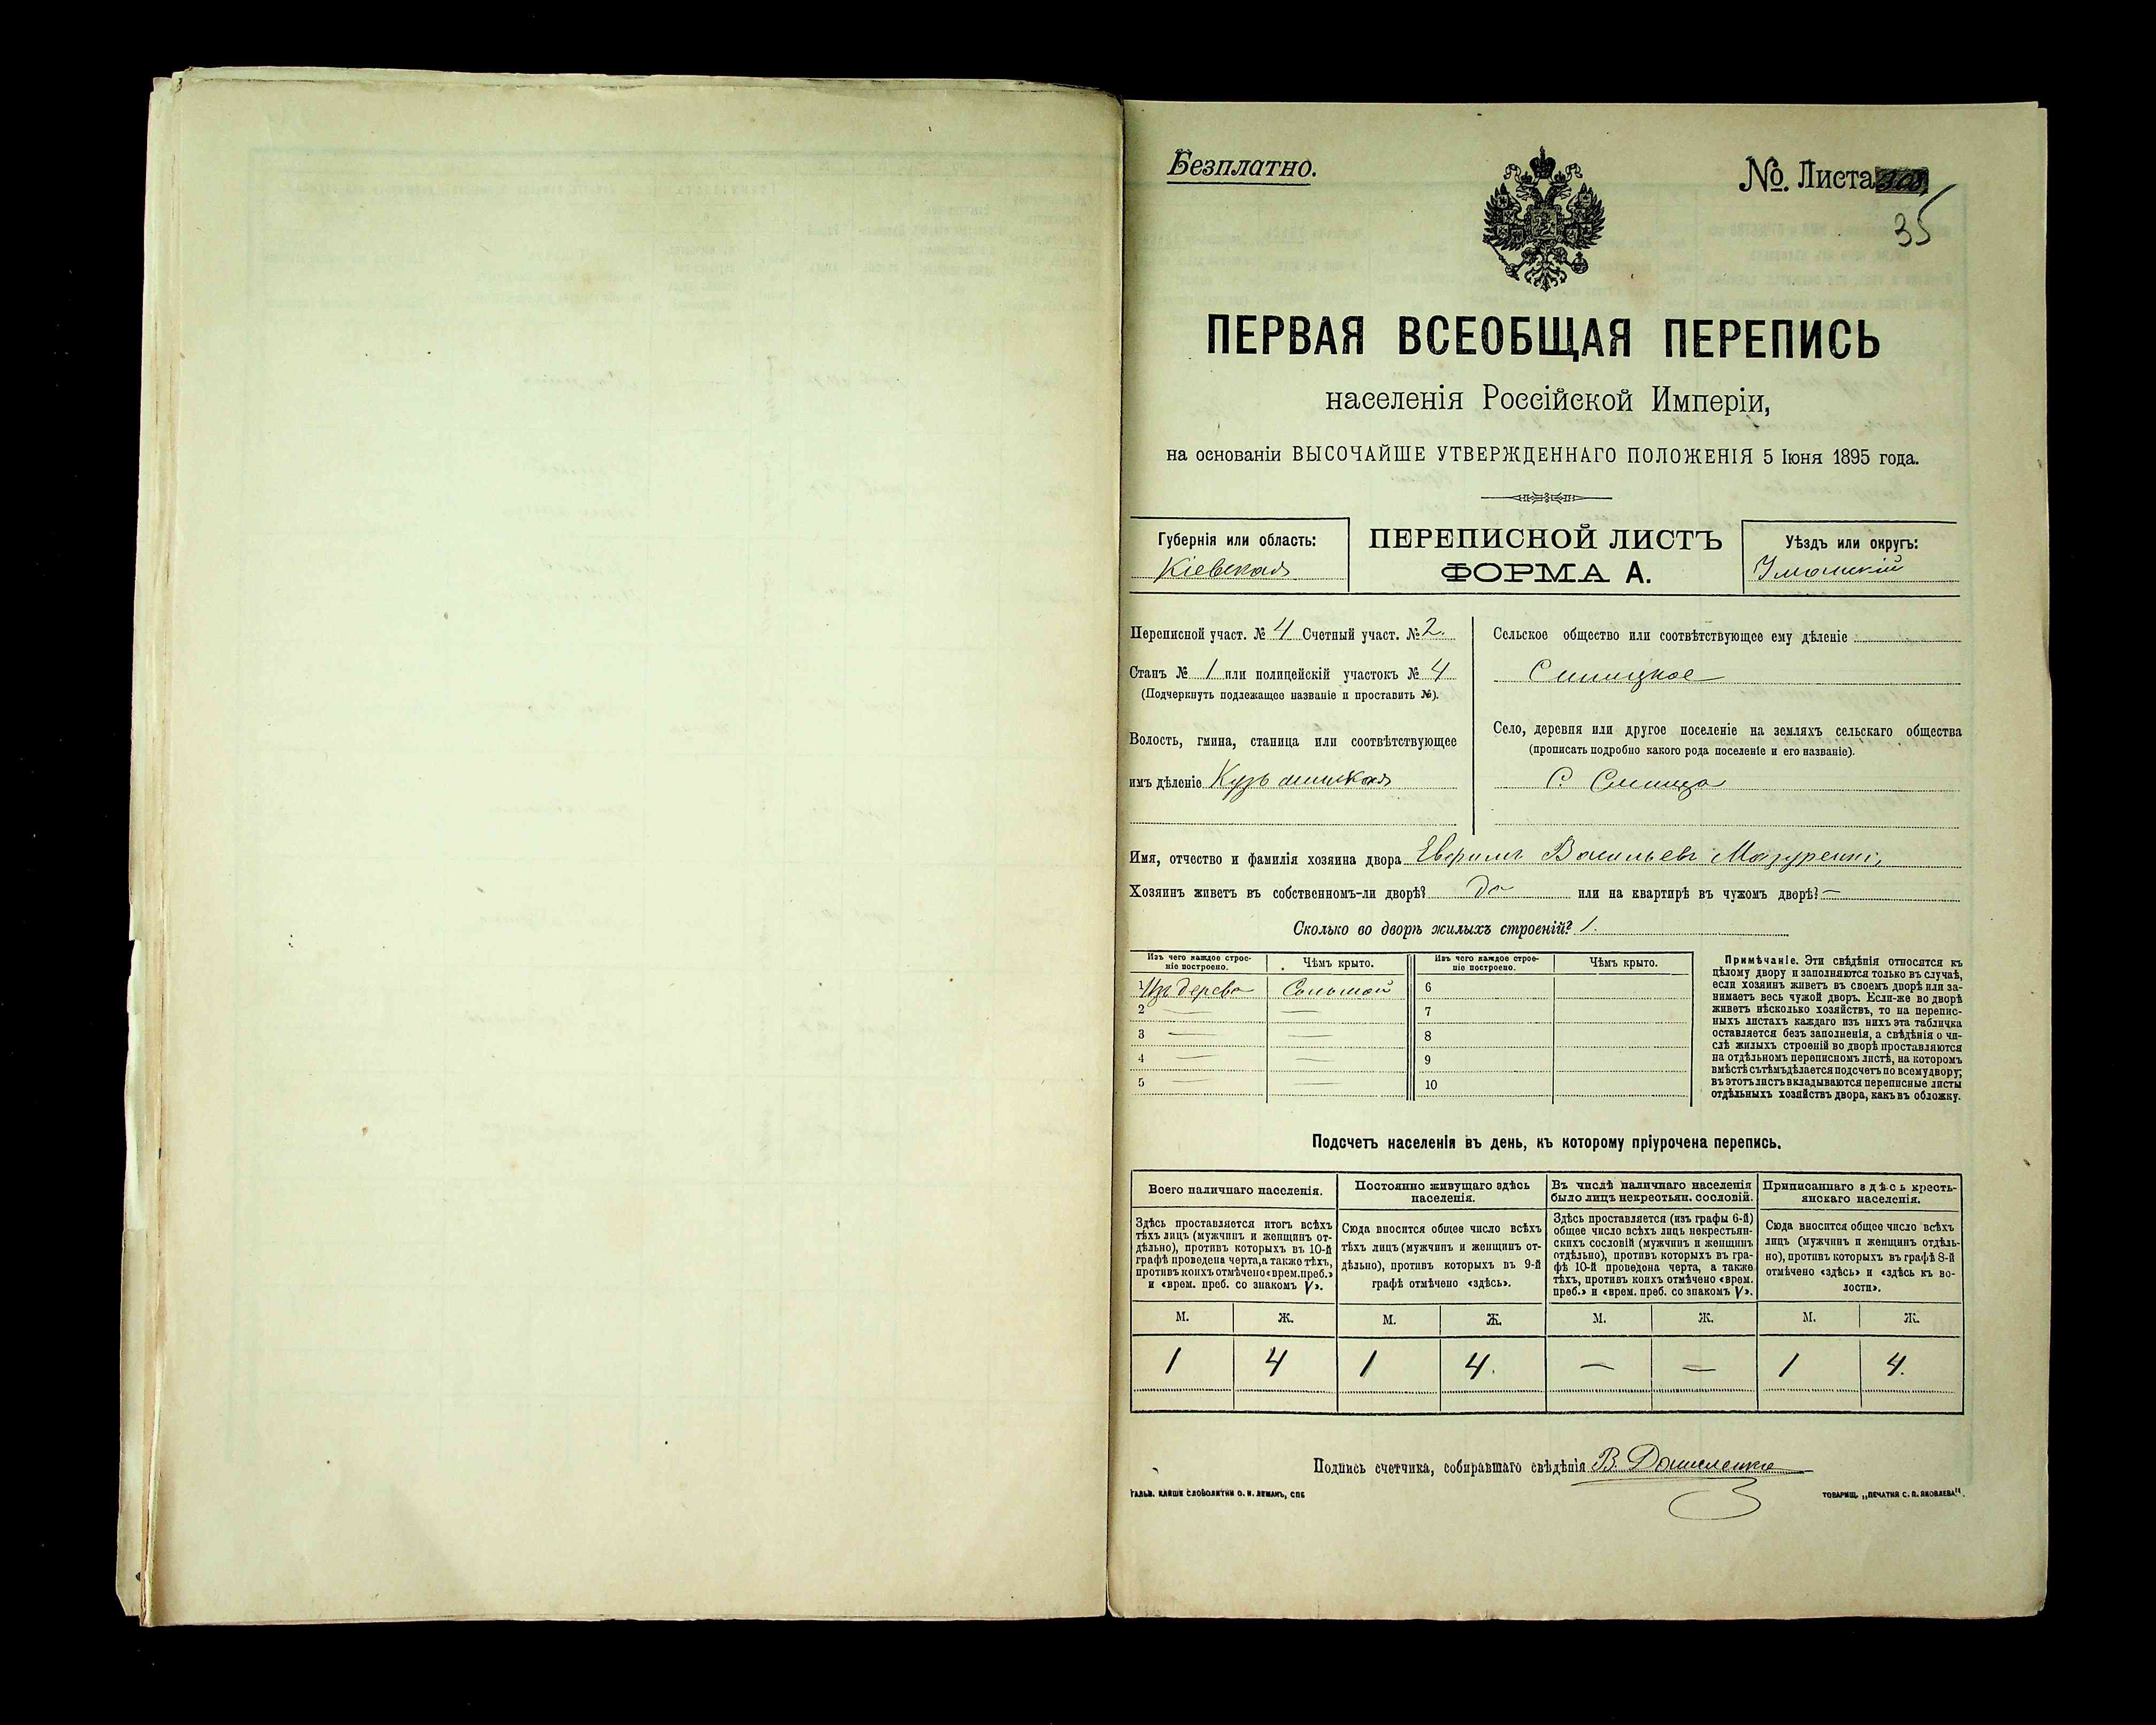 Безплатно.
№ Листа
35
ПЕРВАЯ ВСЕОБЩАЯ ПЕРЕПИСЬ
населенія Россійской Имперіи,
на основаніи ВЫСОЧАЙШЕ УТВЕРЖДЕННАГО ПОЛОЖЕНІЯ 5 Іюня 1895 года.
Губернія или область:
Кіевская
ПЕРЕПИСНОЙ ЛИСТЪ
ФОРМА А.
Уѣздъ или округъ:
Уманскій
Переписной участ. № 4 Счетный участ. № 2.
Станъ № 1 или полицейскій участокъ № 4
(Подчеркнуть подлежащее названіе и проставить №).
Волость, гмина, станица или соотвѣтствующее
имъ дѣленіе
Сельское общество или соотвѣтствующее ему дѣленіе
Синицкое
Село, деревня или другое поселеніе на земляхъ сельскаго общества
(прописать подробно какого рода поселеніе и его названіе).
С. Синица
Имя, отчество и фамилія хозяина двора Васильевъ Мазуренко
Хозяинъ живетъ въ собственномъ-ли дворѣ? да или на квартирѣ въ чужомъ дворѣ? —
Сколько во дворѣ жилыхъ строеній? 1.
Изъ чего каждое строе-
ніе построено.
Чѣмъ крыто.
Изъ чего каждое строе-
ніе построено.
Чѣмъ крыто.
1 Изъ дерева Соломой 6
2 — — 7
3 — — 8
4 — — 9
5 — — 10
Примѣчаніе. Эти свѣдѣнія относятся къ
цѣлому двору и заполняются только въ случаѣ,
если хозяинъ живетъ въ своемъ дворѣ или за-
нимаетъ весь чужой дворъ. Если-же во дворѣ
живетъ нѣсколько хозяйствъ, то на перепис-
ныхъ листахъ каждаго изъ нихъ эта табличка
оставляется безъ заполненія, а свѣдѣнія о чи-
слѣ жилыхъ строеній во дворѣ проставляются
на отдѣльномъ переписномъ листѣ, на которомъ
вмѣстѣ съ тѣмъ дѣлается подсчетъ по всему двору;
въ этотъ листъ вкладываются переписные листы
отдѣльныхъ хозяйствъ двора, какъ въ обложку.
Подсчетъ населенія въ день, къ которому пріурочена перепись.
Всего наличнаго населенія.
Здѣсь проставляется итогъ всѣхъ
тѣхъ лицъ (мужчинъ и женщинъ от-
дѣльно), противъ которыхъ въ 10-й
графѣ проведена черта, а также тѣхъ,
противъ коихъ отмѣчено «врем. преб.»
и «врем. преб. со знакомъ V».
Постоянно живущаго здѣсь
населенія.
Сюда вносится общее число всѣхъ
тѣхъ лицъ (мужчинъ и женщинъ от-
дѣльно), противъ которыхъ въ 9-й
графѣ отмѣчено «здѣсь».
Въ числѣ наличнаго населенія
было лицъ некрестьян. сословій.
Здѣсь проставляется (изъ графы 6-й)
общее число всѣхъ лицъ некрестьян-
скихъ сословій (мужчинъ и женщинъ
отдѣльно), противъ которыхъ въ гра-
фѣ 10-й проведена черта, а также
тѣхъ, противъ коихъ отмѣчено «врем.
преб.» и «врем. преб. со знакомъ V».
Приписаннаго здѣсь кресть-
янскаго населенія.
Сюда вносится общее число всѣхъ
лицъ (мужчинъ и женщинъ отдѣль-
но), противъ которыхъ въ графѣ 8-й
отмѣчено «здѣсь» и «здѣсь къ во-
лости».
М. Ж. М. Ж. М. Ж. М. Ж.
1 4 1 4. — — 1 4.
Подпись счетчика, собиравшаго свѣдѣнія В. Даниленко
ГАЛЬВ. КЛИШЕ СЛОВОЛИТНИ О. И. ЛЕМАНЪ, СПБ
ТОВАРИЩ. „ПЕЧАТНЯ С. П. ЯКОВЛЕВА".